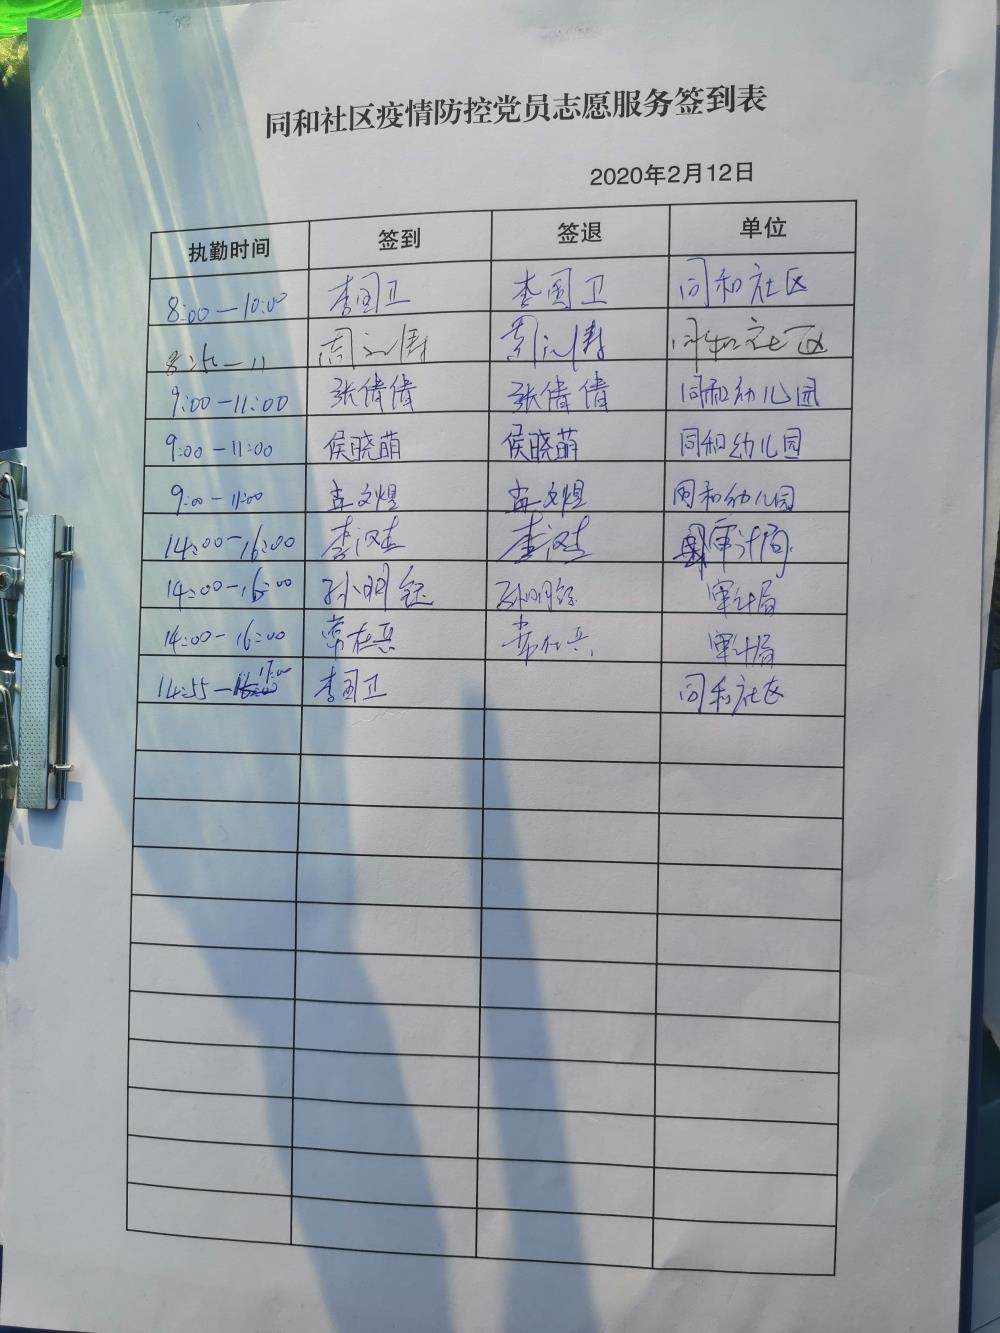 同和社区疫情防控党员志愿服务签到表
2020年2月12日
执勤时间 签到 签退 单位
8:00—10:00 李国卫 李国卫 同和社区
周 涛 周 涛 同和社区
9:00—11:00 张倩倩 张倩倩 同和幼儿园
9:00—11:00 侯晓萌 侯晓萌 同和幼儿园
9:00—11:00 文煜 文煜 同和幼儿园
14:00—16:00 李汉 李汉 审计局
14:00—16:00 孙明钰 孙明钰 审计局
14:00—16:00 常在兵 常在兵 审计局
14:55—17:00 李国卫 同和社区